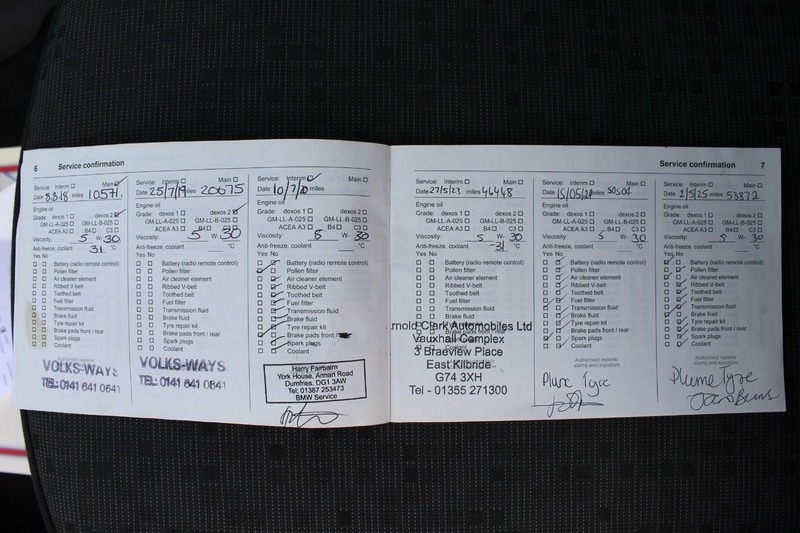 6 Service confirmation
Service: Interim Main
Date 8.3.18 miles 10571.
Engine oil
Grade: dexos 1 dexos 2
GM-LL-A-025 GM-LL-B-025
ACEA A3 B4 C3
Viscosity: 5 W- 30
Anti-freeze, coolant 31 °C
Yes No
Battery (radio remote control)
Pollen filter
Air cleaner element
Ribbed V-belt
Toothed belt
Fuel filter
Transmission fluid
Brake fluid
Tyre repair kit
Brake pads front / rear
Spark plugs
Coolant
VOLKS-WAYS
TEL: 0141 641 0641
Service: Interim Main
Date 25/7/19 miles 20675
Engine oil
Grade: dexos 1 dexos 2
GM-LL-A-025 GM-LL-B-025
ACEA A3 B4 C3
Viscosity: 5 W- 30
Anti-freeze, coolant °C
Yes No
Battery (radio remote control)
Pollen filter
Air cleaner element
Ribbed V-belt
Toothed belt
Fuel filter
Transmission fluid
Brake fluid
Tyre repair kit
Brake pads front / rear
Spark plugs
Coolant
VOLKS-WAYS
TEL: 0141 641 0641
Service: Interim Main
Date 10/7/20 miles
Engine oil
Grade: dexos 1 dexos 2
GM-LL-A-025 GM-LL-B-025
ACEA A3 B4 C3
Viscosity: 5 W- 30
Anti-freeze, coolant °C
Yes No
Battery (radio remote control)
Pollen filter
Air cleaner element
Ribbed V-belt
Toothed belt
Fuel filter
Transmission fluid
Brake fluid
Tyre repair kit
Brake pads front / rear
Spark plugs
Coolant
Harry Fairbairn
York House, Annan Road
Dumfries, DG1 3AW
Tel: 01387 253473
BMW Service
Service confirmation 7
Service: Interim Main
Date 27/5/23 miles 46448
Engine oil
Grade: dexos 1 dexos 2
GM-LL-A-025 GM-LL-B-025
ACEA A3 B4 C3
Viscosity: 5 W- 30
Anti-freeze, coolant -31 °C
Yes No
Battery (radio remote control)
Pollen filter
Air cleaner element
Ribbed V-belt
Toothed belt
Fuel filter
Transmission fluid
Brake fluid
Arnold Clark Automobiles Ltd
Vauxhall Complex
3 Braeview Place
East Kilbride
G74 3XH
Tel - 01355 271300
Service: Interim Main
Date 15/05/24 miles
Engine oil
Grade: dexos 1 dexos 2
GM-LL-A-025 GM-LL-B-025
ACEA A3 B4 C3
Viscosity: 5 W- 30
Anti-freeze, coolant °C
Yes No
Battery (radio remote control)
Pollen filter
Air cleaner element
Ribbed V-belt
Toothed belt
Fuel filter
Transmission fluid
Brake fluid
Tyre repair kit
Brake pads front / rear
Spark plugs
Coolant
Authorised repairer
stamp and signature
Plume Tyre
Service: Interim Main
Date 2/5/25 miles 53872
Engine oil
Grade: dexos 1 dexos 2
GM-LL-A-025 GM-LL-B-025
ACEA A3 B4 C3
Viscosity: 5 W- 30
Anti-freeze, coolant °C
Yes No
Battery (radio remote control)
Pollen filter
Air cleaner element
Ribbed V-belt
Toothed belt
Fuel filter
Transmission fluid
Brake fluid
Tyre repair kit
Brake pads front / rear
Spark plugs
Coolant
Authorised repairer
stamp and signature
Plume Tyre